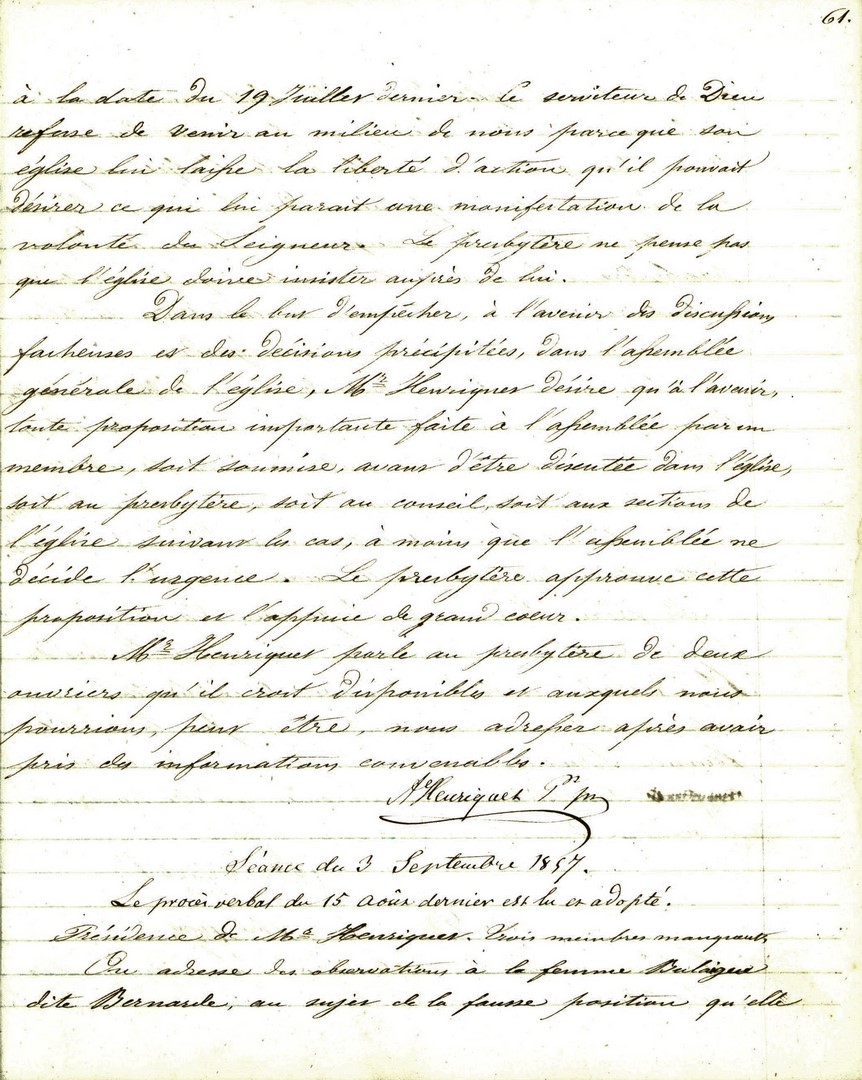 61.
à la date du 19 Juillet dernier. Ce serviteur de Dieu
refuse de venir au milieu de nous parce que son
église lui laisse la liberté d'action qu'il pouvait
désirer ce qui lui parait une manifestation de la
volonté du Seigneur. Le presbytère ne pense pas
que l'église doive insister auprès de lui.
Dans le but d'empêcher, à l'avenir des discussions
facheuses et des décisions précipitées, dans l'assemblée
générale de l'église, Mr Henriquet désire qu'à l'avenir,
toute proposition importante faite à l'assemblée par un
membre, soit soumise, avant d'être discutée dans l'église,
soit au presbytère, soit au conseil, soit aux sections de
l'église suivant les cas, à moins que l'assemblée ne
décide l'urgence. Le presbytère approuve cette
proposition et l'appuie de grand coeur.
Mr Henriquet parle au presbytère de deux
ouvriers qu'il croit disponibles et auxquels nous
pourrions, peut être, nous adresser après avoir
pris des informations convenables.
Ae Henriquet
Séance du 3 Septembre 1857.
Le procès verbal du 15 août dernier est lu et adopté.
Présidence de Mr Henriquet. Trois membres manquent
On adresse des observations à la femme
dite Bernarde, au sujet de la fausse position qu'elle